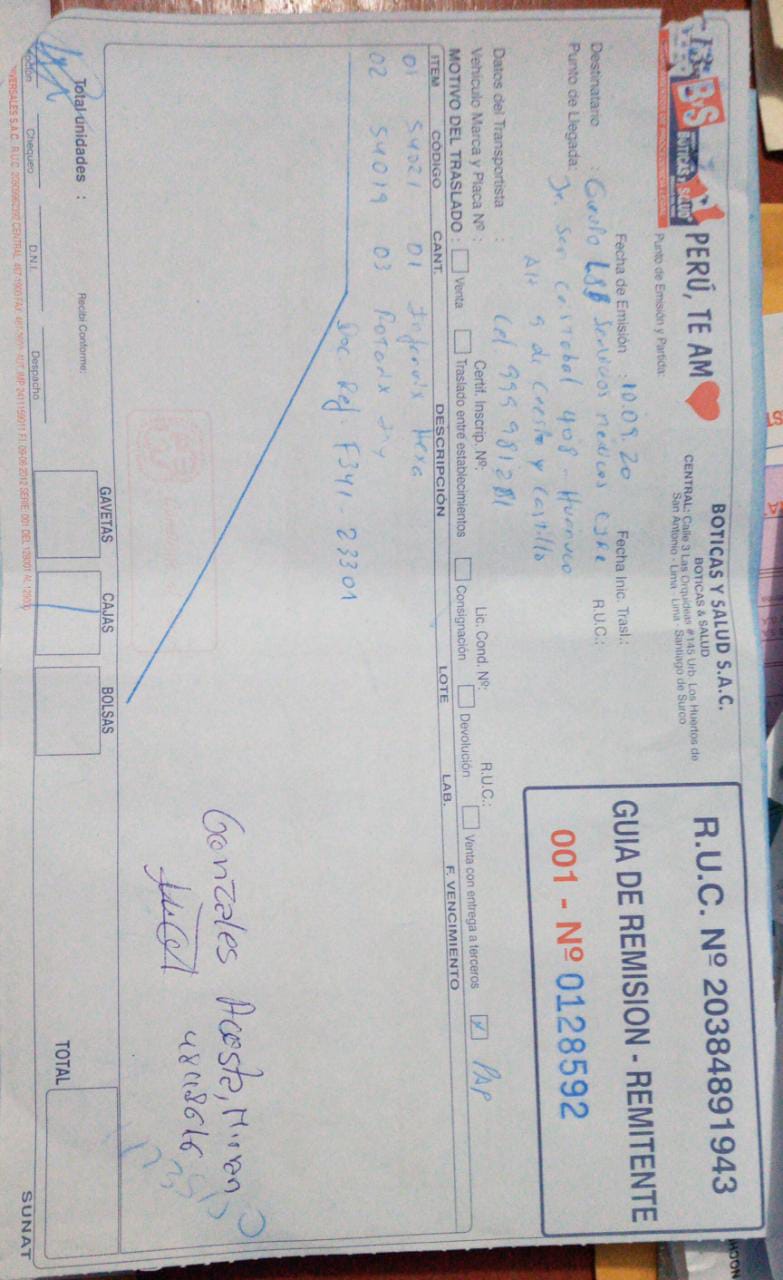 B&S
BOTICAS & SALUD
PERÚ, TE AM
BOTICAS Y SALUD S.A.C.
BOTICAS & SALUD
CENTRAL: Calle 3 Las Orquideas #145 Urb. Los Huertos de
San Antonio - Lima - Lima - Santiago de Surco
R.U.C. Nº 20384891943
GUIA DE REMISION - REMITENTE
001 - Nº 0128592
Punto de Emisión y Partida:
Fecha de Emisión : 10.09.20 Fecha Inic. Trasl.:
Destinatario : Servicios medicos R.U.C.:
Punto de Llegada: Jr. San Cristobal 408 - Huanuco
Alt 9 de Crespo y Castillo
Datos del Transportista : Cel. 999981281
Vehículo Marca y Placa Nº : Certif. Inscrip. Nº: Lic. Cond. Nº: R.U.C.:
MOTIVO DEL TRASLADO : Venta Traslado entre establecimientos Consignación Devolución Venta con entrega a terceros PAP
ITEM CÓDIGO CANT. DESCRIPCIÓN LOTE LAB. F. VENCIMIENTO
01 54021 01 Infanrix Hexa
02 54019 03 Rotarix
Doc Ref. F341-23301
Gonzales Acosta, Mirian
48118616
GAVETAS CAJAS BOLSAS TOTAL
Total unidades : Recibí Conforme:
Chequeo D.N.I. Despacho
SUNAT